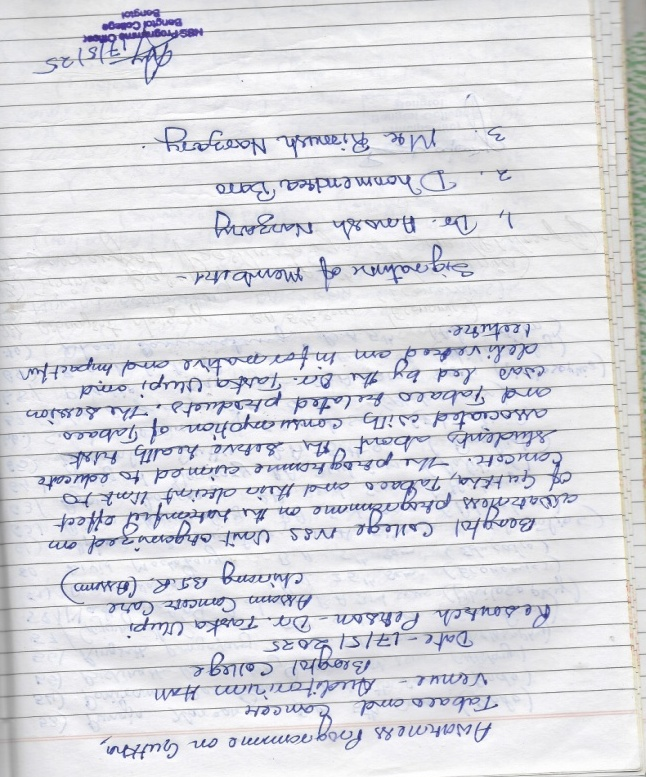 Awarness Programme on Gutkha,
Tabaco and Cancer
Venue - Auditorium Hall
Bengtol College
Date - 17/5/2025
Resourch Person - Dr. Taska Ulupi
Assam Cancer Care
Chirang B.T.R. (Assam)
Bengtol College NSS Unit organized an
awarness programme on the harmful effect
of Gutkha, Tabaco and their dricint link to
Cancer. The programme aimed to educate
students about the serive health risk
associated with consumption of Tabaco
and Tabaco related products. The session
was led by the Dr. Taska Ulupi and
delivered an informative and impactful
lecture.
Signature of Members -
1, Dr. Amesh Narzary
2. Dhormendra Boro
3. Mr. Rimush Narzary.
17/5/25
NSS Programme Officer
Bengtol College
Bengtol